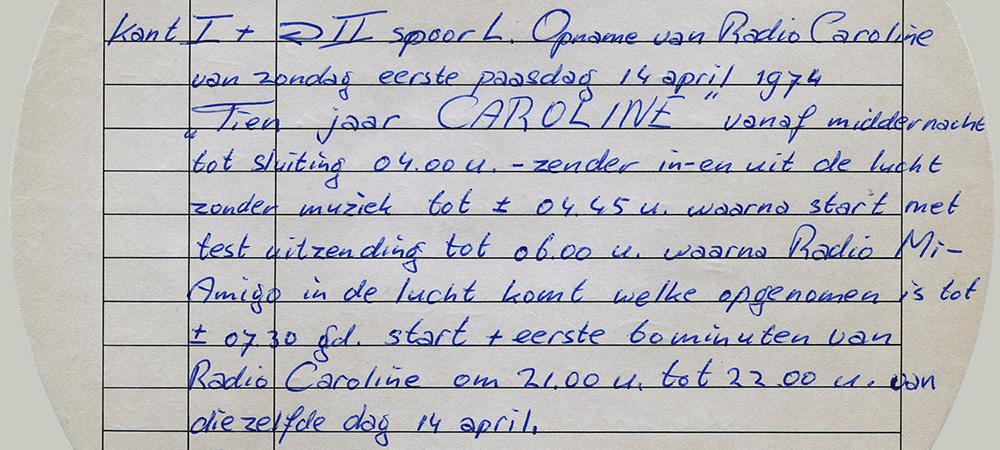 Kant I + ⊋ II spoor L. Opname van Radio Caroline
van zondag eerste paasdag 14 april 1974
„Tien jaar CAROLINE" vanaf middernacht
tot sluiting 04.00 u. - zender in-en uit de lucht
zonder muziek tot ± 04.45 u. waarna start met
test uitzending tot 06.00 u. waarna Radio Mi-
Amigo in de lucht komt welke opgenomen is tot
± 07.30 gd. start + eerste 60 minuten van
Radio Caroline om 21.00 u. tot 22.00 u. van
diezelfde dag 14 april.